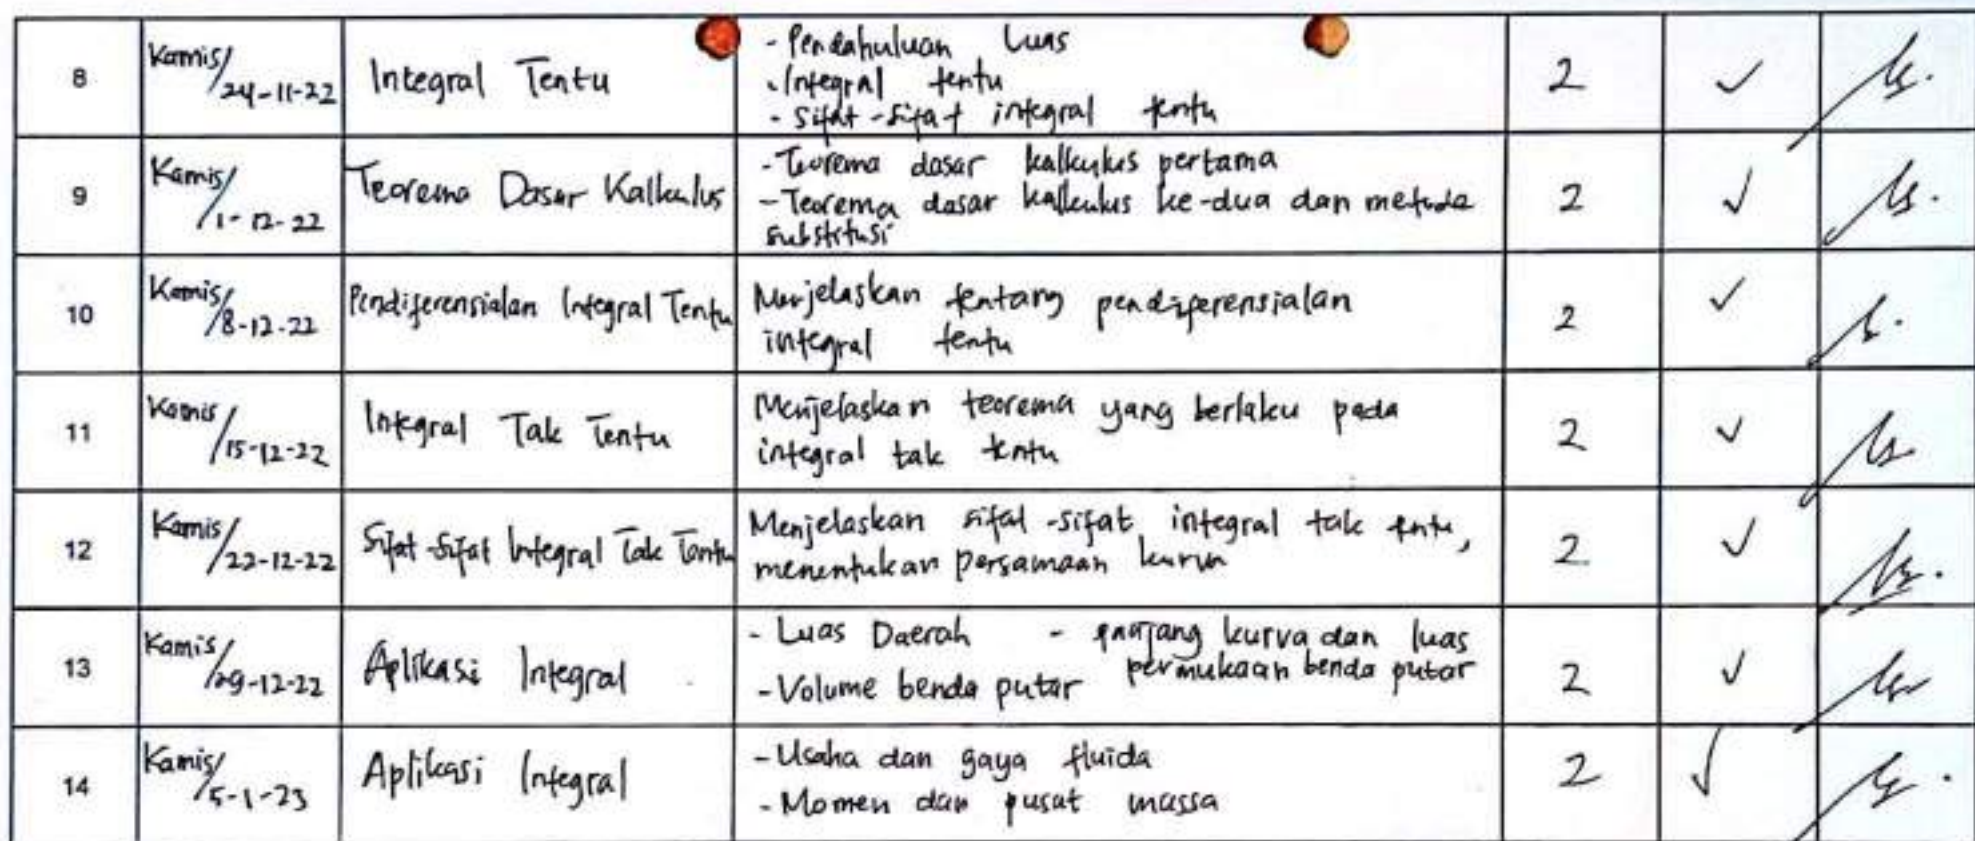 8
Kamis/
24-11-22
Integral Tentu
- Pendahuluan Luas
- Integral tentu
- Sifat-sifat integral tentu
2 ✓
9
Kamis/
1-12-22
Teorema Dasar Kalkulus
- Teorema dasar kalkulus pertama
- Teorema dasar kalkulus ke-dua dan metode
substitusi
2 ✓
10
Kamis/
8-12-22
Pendiferensialan Integral Tentu
Menjelaskan tentang pendiferensialan
integral tentu
2 ✓
11
Kamis/
15-12-22
Integral Tak Tentu
Menjelaskan teorema yang berlaku pada
integral tak tentu
2 ✓
12
Kamis/
22-12-22
Sifat-Sifat Integral Tak Tentu
Menjelaskan sifat-sifat integral tak tentu,
menentukan persamaan kurva
2 ✓
13
Kamis/
29-12-22
Aplikasi Integral
- Luas Daerah - panjang kurva dan luas
permukaan benda putar
- Volume benda putar
2 ✓
14
Kamis/
5-1-23
Aplikasi Integral
- Usaha dan gaya fluida
- Momen dan pusat massa
2 ✓